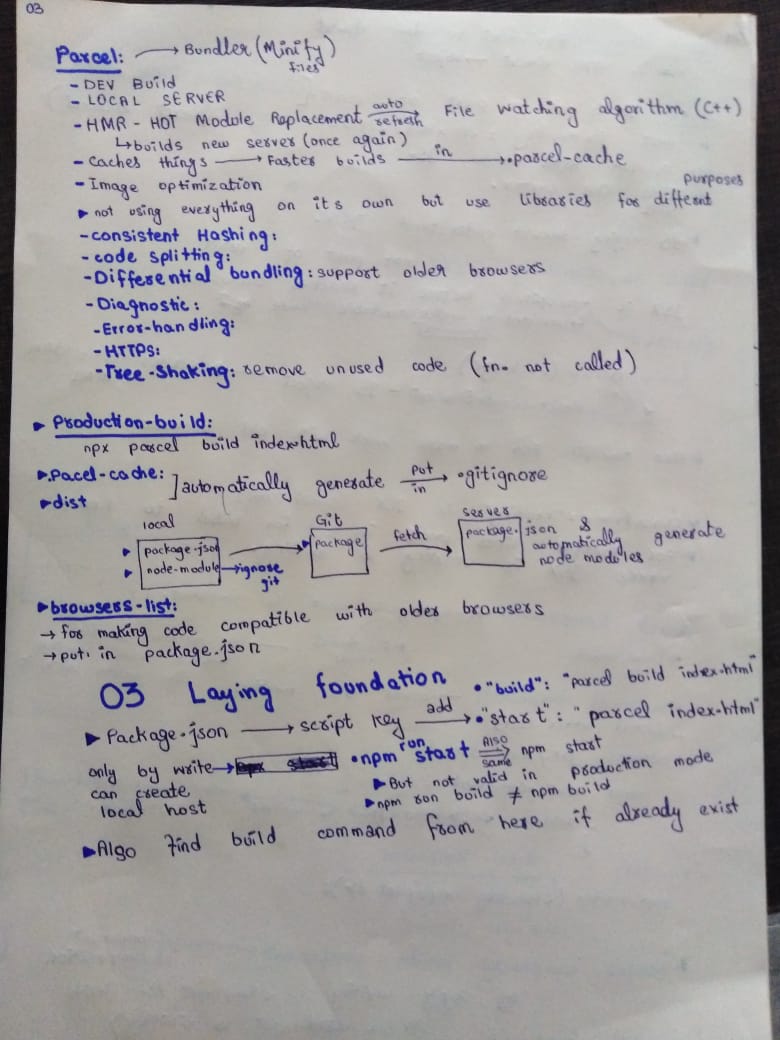 03
Parcel: → Bundler (Minify files)
- DEV Build
- LOCAL SERVER
- HMR - HOT Module Replacement auto refresh → File watching algorithm (C++)
↳ builds new server (once again)
- Caches things → Faster builds in → .parcel-cache
- Image optimization
▶ not using everything on its own but use libraries for different purposes
- consistent Hashing:
- code splitting:
- Differential bundling: support older browsers
- Diagnostic:
- Error-handling:
- HTTPS:
- Tree-Shaking: remove unused code (fn. not called)
▶ Production-build:
npx parcel build index.html
▶ .Pacel-cache:
▶ dist ] automatically generate put in → .gitignore
local Git server
▶ package.json → ▶ package fetch → package.json & automatically generate node modules
▶ node-module → ignore git
▶ browsers-list:
→ for making code compatible with older browsers
→ put. in package.json
03 Laying foundation
• "build": "parcel build index.html"
▶ Package.json → script key add → • "start": "parcel index.html"
only by write → npx start • npm run start Also same ⇒ npm start
can create local host
▶ But not valid in production mode
▶ npm run build ≠ npm build
▶ Algo find build command from here if already exist